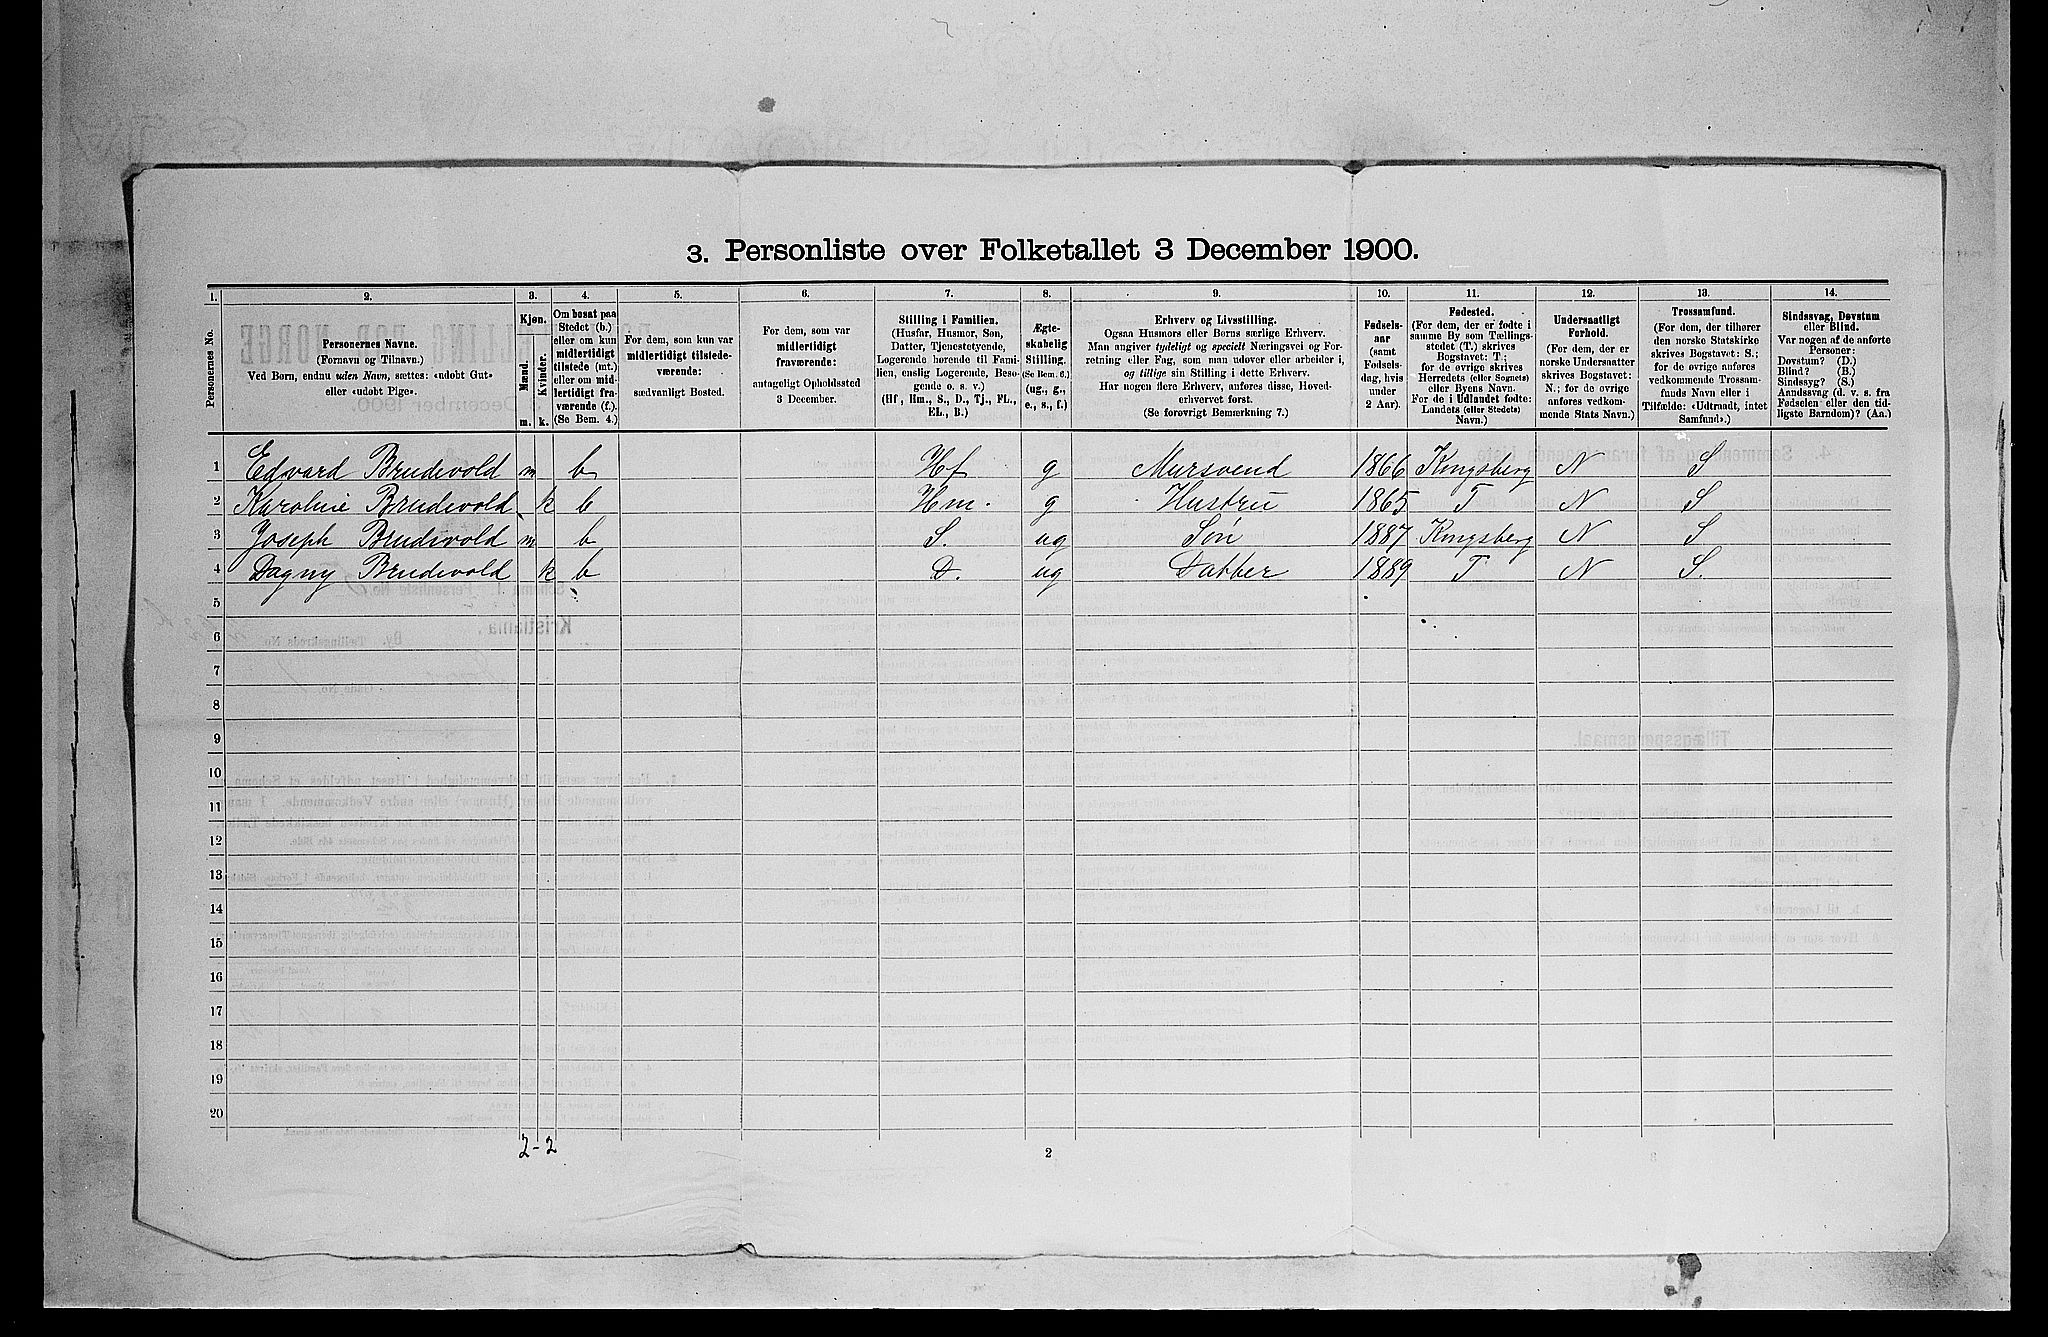 3. Personliste over Folketallet 3 December 1900.
1. 2. 3. 4. 5. 6. 7. 8. 9. 10. 11. 12. 13. 14.
Personernes No.
Personernes Navne.
(Fornavn og Tilnavn.)
Ved Børn, endnu uden Navn, sættes: «udøbt Gut»
eller «udøbt Pige».
Kjøn.
Mænd.
Kvinder.
m. k.
Om bosat paa
Stedet (b.)
eller om kun
midlertidigt
tilstede (mt.)
eller om mid-
lertidigt fra-
værende (f.)
(Se Bem. 4.)
For dem, som kun var
midlertidigt tilstede-
værende:
sædvanligt Bosted.
For dem, som var
midlertidigt
fraværende:
antageligt Opholdssted
3 December.
Stilling i Familien.
(Husfar, Husmor, Søn,
Datter, Tjenestetyende,
Logerende hørende til Fami-
lien, enslig Logerende, Besø-
gende o. s. v.)
(Hf, Hm., S., D., Tj., FL.,
EL., B.)
Ægte-
skabelig
Stilling.
(Se Bem. 6.)
(ug., g.,
e., s., f.)
Erhverv og Livsstilling.
Ogsaa Husmors eller Børns særlige Erhverv.
Man angiver tydeligt og specielt Næringsvei og For-
retning eller Fag, som man udøver eller arbeider i,
og tillige sin Stilling i dette Erhverv.
Har nogen flere Erhverv, anføres disse, Hoved-
erhvervet først.
(Se forøvrigt Bemærkning 7.)
Fødsels-
aar
(samt
Fødsels-
dag, hvis
under
2 Aar).
Fødested.
(For dem, der er fødte i
samme By som Tællings-
stedet (T.) skrives
Bogstavet: T.;
for de øvrige skrives
Herredets (eller Sognets)
eller Byens Navn.
For de i Udlandet fødte:
Landets (eller Stedets)
Navn.)
Undersaatligt
Forhold.
(For dem, der er
norske Undersaatter
skrives Bogstavet:
N.; for de øvrige
anføres vedkom-
mende Stats Navn.)
Trossamfund.
(For dem, der tilhører
den norske Statskirke
skrives Bogstavet: S.;
for de øvrige anføres
vedkommende Trossam-
funds Navn eller i
Tilfælde: «Udtraadt, intet
Samfund».)
Sindssvag, Døvstum
eller Blind.
Var nogen af de anførte
Personer:
Døvstum? (D.)
Blind? (B.)
Sindssyg? (S.)
Aandssvag (d. v. s. fra
Fødselen eller den tid-
ligste Barndom)? (Aa.)
1 Edvard Brudevold m b Hf g Mursvend 1866 Kongsberg N S
2 Karoline Brudevold k b Hm. g Hustru 1865 T N S
3 Joseph Brudevold m b S. ug Søn 1887 Kongsberg N S
4 Dagny Brudevold k b D. ug Datter 1889 T N S.
5
6
7
8
9
10
11
12
13
14
15
16
17
18
19
20
2-2
2